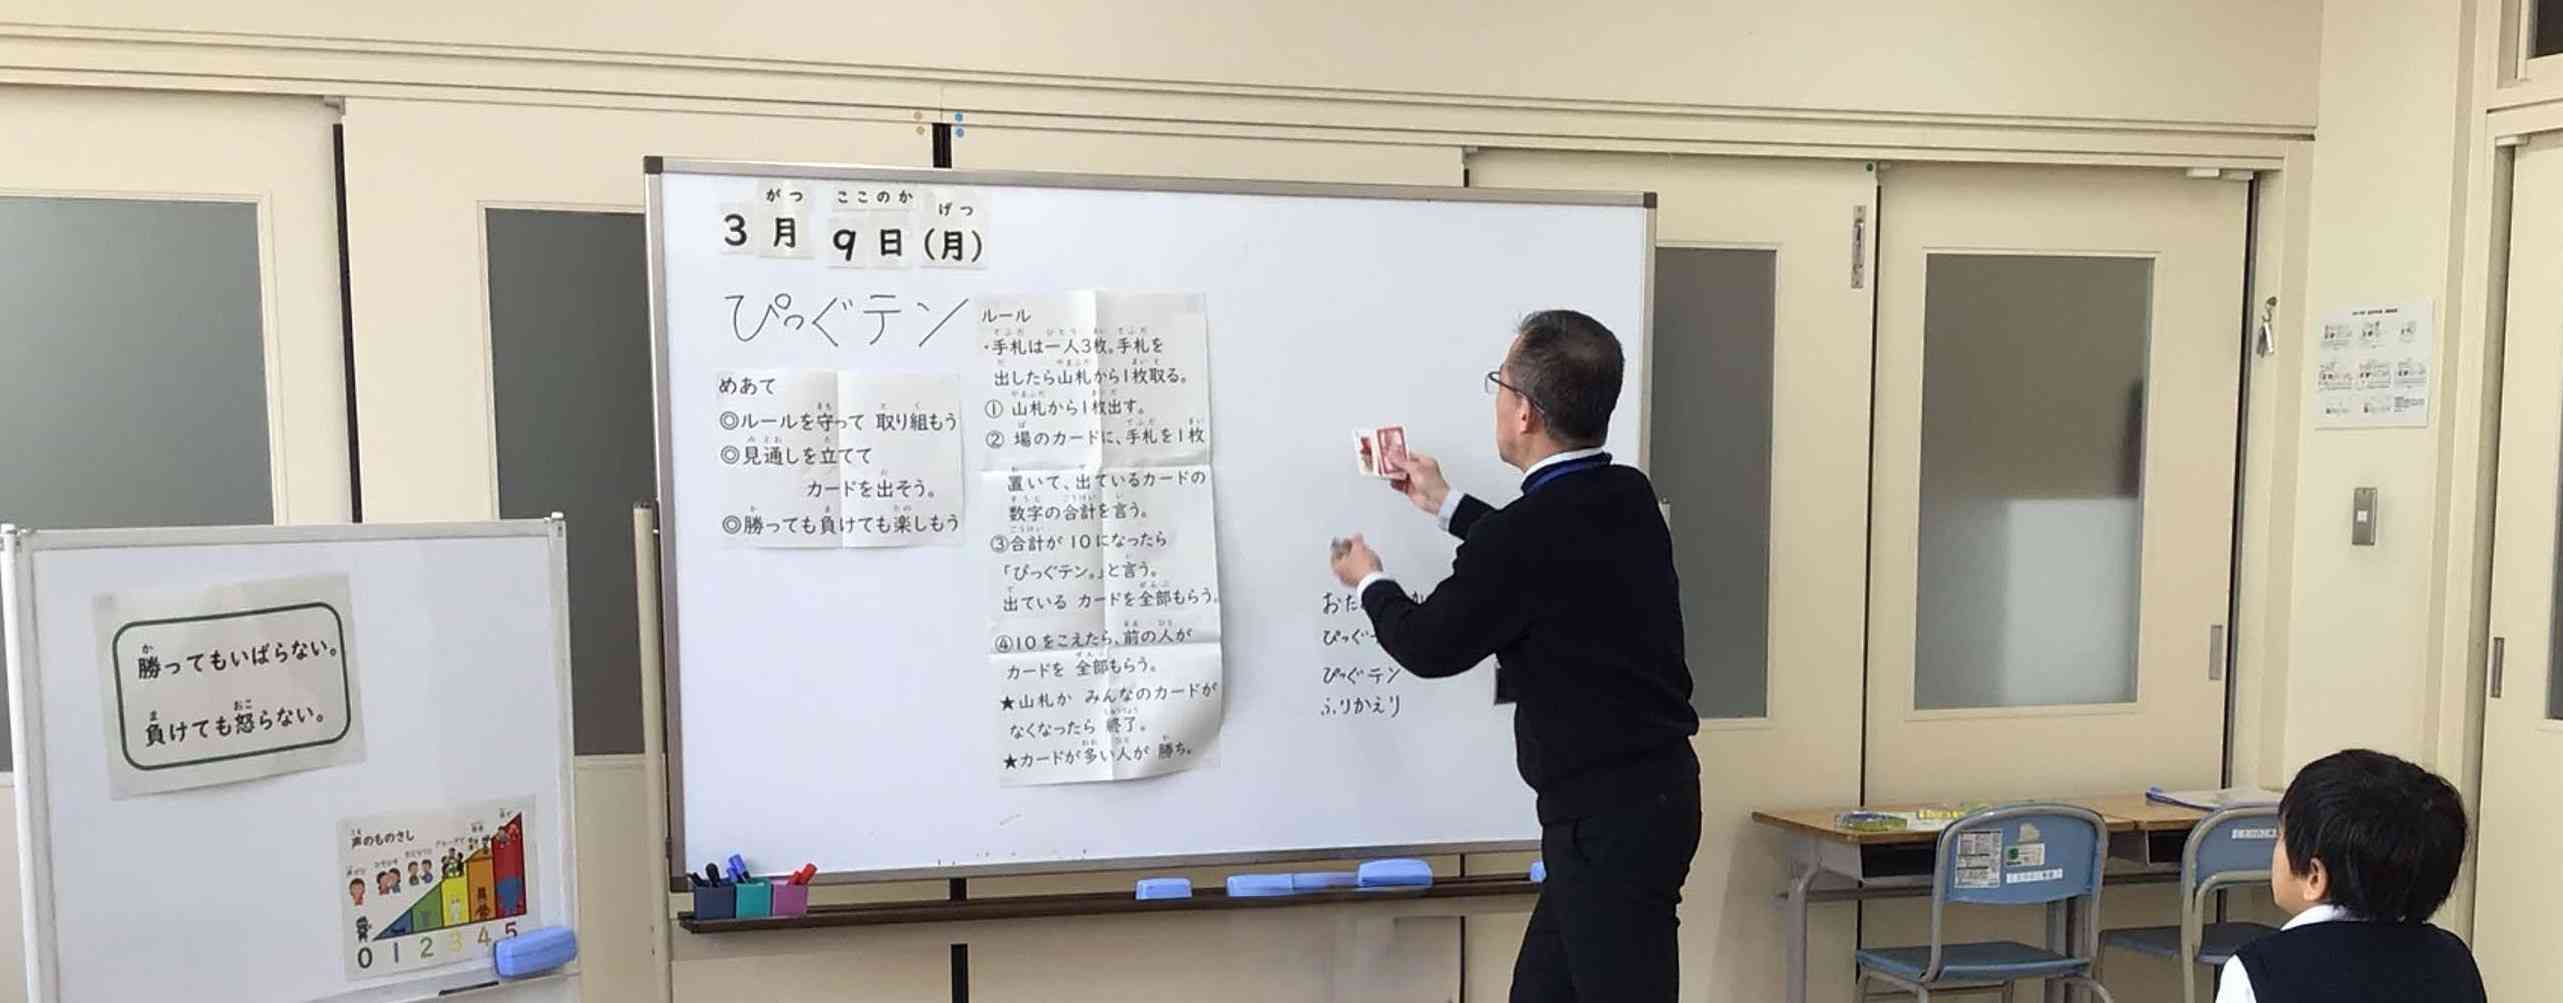 3月 9日(月)
がつ ここのか げつ
ぴっぐテン
めあて
◎ルールを守って 取り組もう
◎見通しを立てて
カードを出そう。
◎勝っても負けても楽しもう
ルール
・手札は一人3枚。手札を
出したら山札から1枚取る。
① 山札から1枚出す。
② 場のカードに、手札を1枚
置いて、出ているカードの
数字の合計を言う。
③合計が 10になったら
「ぴっぐテン。」と言う。
出ている カードを全部もらう。
④10をこえたら、前の人が
カードを 全部もらう。
★山札か みんなのカードが
なくなったら 終了。
★カードが多い人が 勝ち。
ぴっぐ
ぴっぐテン
ふりかえり
勝ってもいばらない。
負けても怒らない。
声のものさし
0 1 2 3 4 5